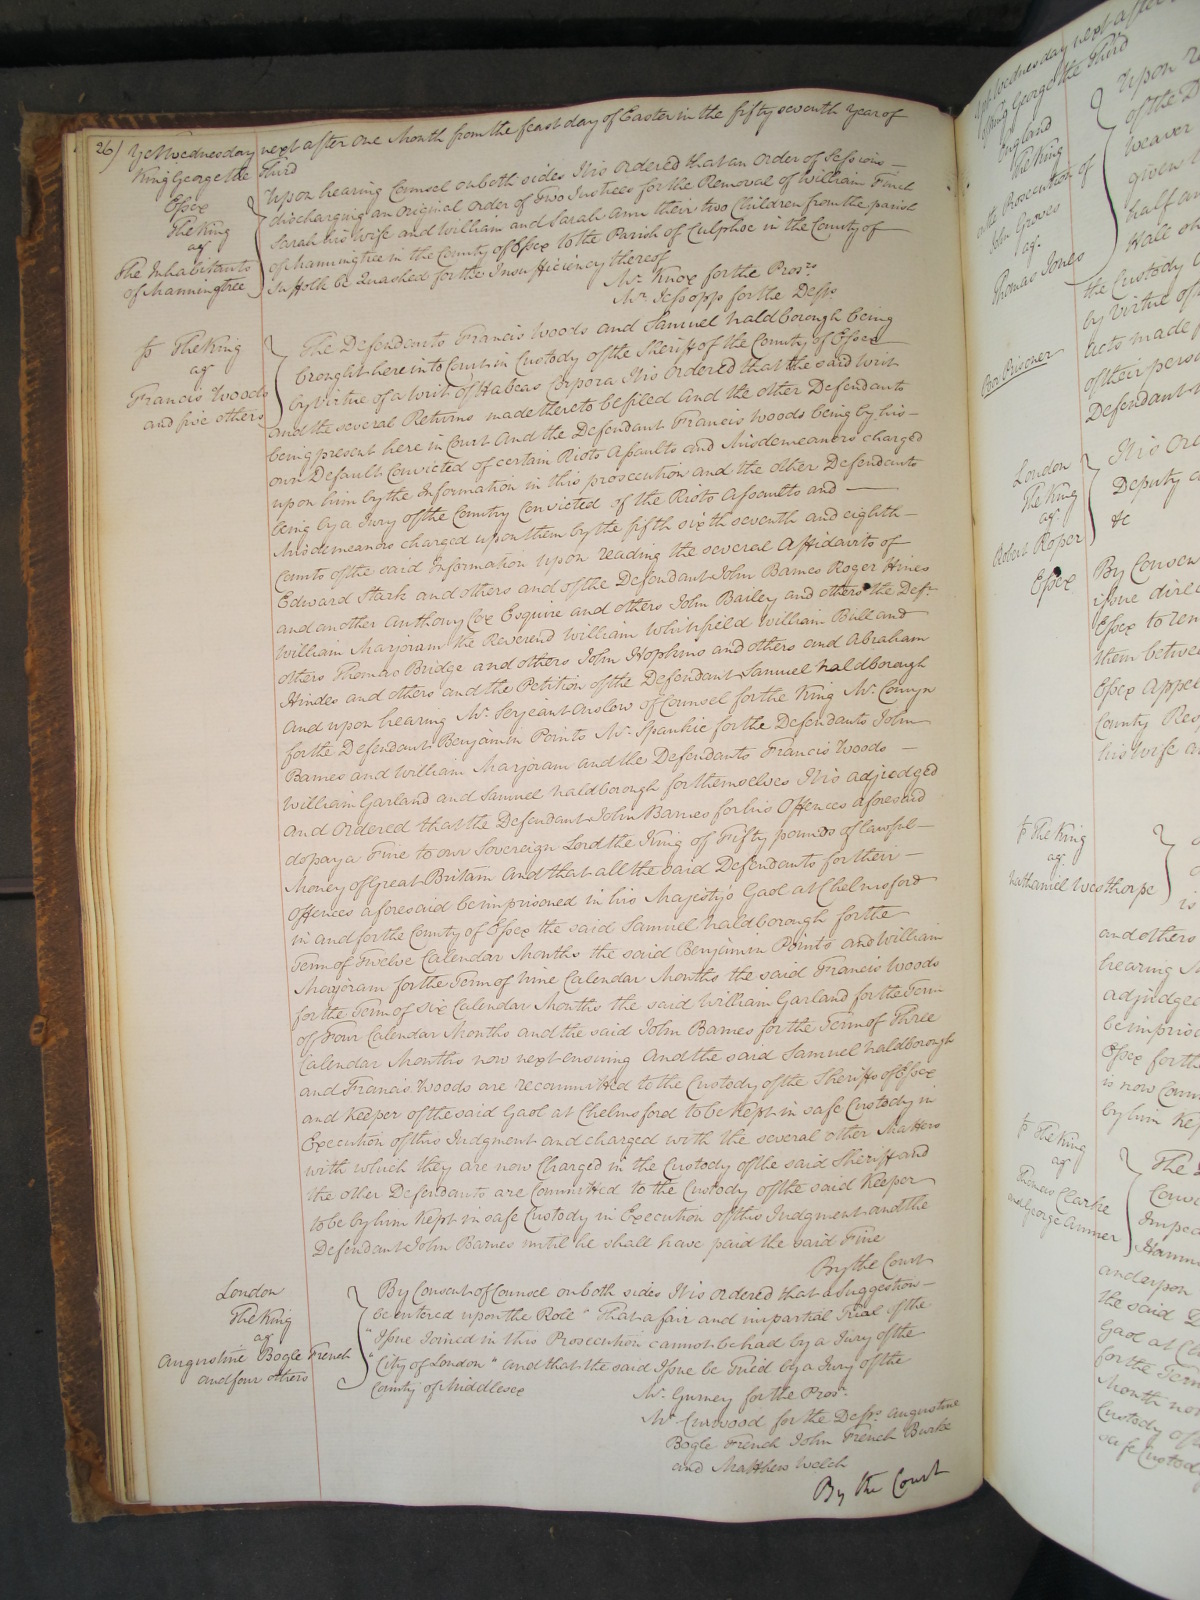 26) Yet Wednesday next after One Month from the feast day of Easter in the fifty seventh Year of
King George the Third
Essex
The King
agt
The Inhabitants
of Manningtree
Upon hearing Counsel on both sides It is Ordered that an Order of Sessions —
discharging an Original Order of Two Justices for the Removal of William Finch
Sarah his Wife and William and Sarah Ann their two Children from the parish
of Manningtree in the County of Essex to the Parish of Culphoe in the County of
Suffolk be Quashed for the Insufficiency thereof
Mr. Knox for the Prosrs.
Mr. Jessopp for the Defts.
The King
agt
Francis Woods
and five others
The Defendants Francis Woods and Samuel Haldborough being
brought here into Court in Custody of the Sheriff of the County of Essex
by virtue of a writ of Habeas Corpora It is Ordered that the said writ
and the several Returns made thereto be filed And the other Defendants
being present here in Court And the Defendant Francis Woods being by his —
own Default Convicted of certain Riots Assaults and Misdemeanors charged
upon him by the Information in this prosecution and the other Defendants
being by a Jury of the Country Convicted of the Riots Assaults and —
Misdemeanors charged upon them by the fifth sixth seventh and eighth —
Counts of the said Information Upon reading the several Affidavits of
Edward Stark and others and of the Defendant John Barnes Roger Hines
and another Anthony Cox Esquire and others John Bailey and others the Deft.
William Marjoram the Reverend William Whitfield William Bull and
others Thomas Bridge and others John Hopkins and others and Abraham
Hindes and others and the Petition of the Defendant Samuel Haldborough
And upon hearing Mr. Serjeant Onslow of Counsel for the King Mr. Comyn
for the Defendant Benjamin Points Mr. Spankie for the Defendants John
Barnes and William Marjoram and the Defendants Francis Woods —
William Garland and Samuel Haldborough for themselves It is adjudged
and Ordered that the Defendant John Barnes for his Offences aforesaid
do pay a Fine to our Sovereign Lord the King of Fifty pounds of lawful —
Money of Great Britain And that all the said Defendants for their —
Offences aforesaid be imprisoned in his Majesty's Gaol at Chelmsford
in and for the County of Essex the said Samuel Haldborough for the
Term of Twelve Calendar Months the said Benjamin Points and William
Marjoram for the Term of Nine Calendar Months the said Francis Woods
for the Term of Six Calendar Months the said William Garland for the Term
of Four Calendar Months and the said John Barnes for the Term of Three
Calendar Months now next ensuing And the said Samuel Haldborough
and Francis Woods are recommitted to the Custody of the Sheriffs of Essex
and Keeper of the said Gaol at Chelmsford to be Kept in safe Custody in
Execution of this Judgment and charged with the several other Matters
with which they are now Charged in the Custody of the said Sheriff and
the other Defendants are Committed to the Custody of the said Keeper
to be by him Kept in safe Custody in Execution of this Judgment and the
Defendant John Barnes until he shall have paid the said Fine
By the Court
London
The King
agt
Augustine Bogle French
and four others
By Consent of Counsel on both sides It is Ordered that a Suggestion —
be entered upon the Role "That a fair and impartial Trial of the
"Issue Joined in this Prosecution cannot be had by a Jury of the
"City of London" and that the said Issue be Tried by a Jury of the
County of Middlesex
Mr. Gurney for the Prosr.
Mr. Curwood for the Defts. Augustine
Bogle French John French Burke
and Matthew Welch
By the Court
next after
King George the Third
England
The King
on the Prosecution of
John Groves
agt.
Thomas Jones
Upon
of the
weaver
given
half an
Hall
the Custody
by virtue of
acts made
of their pers
Defendant
Per Prisoner
London
The King
agt.
Robert Roper
It is Or
Deputy
&c
Essex
By Consen
issue dire
Essex to rem
them betwee
Essex Appel
County Res
his Wife a
The King
agt
Nathaniel Westhorpe
is
and others
hearing
adjudged
be impriso
Essex for th
is now Comm
by him Kep
The King
agt
Thomas Clarke
and George Ammer
The
Convi
Impea
Hamm
and upon
the said D
Gaol at Ch
for the Term
Month no
Custody of
safe Custod